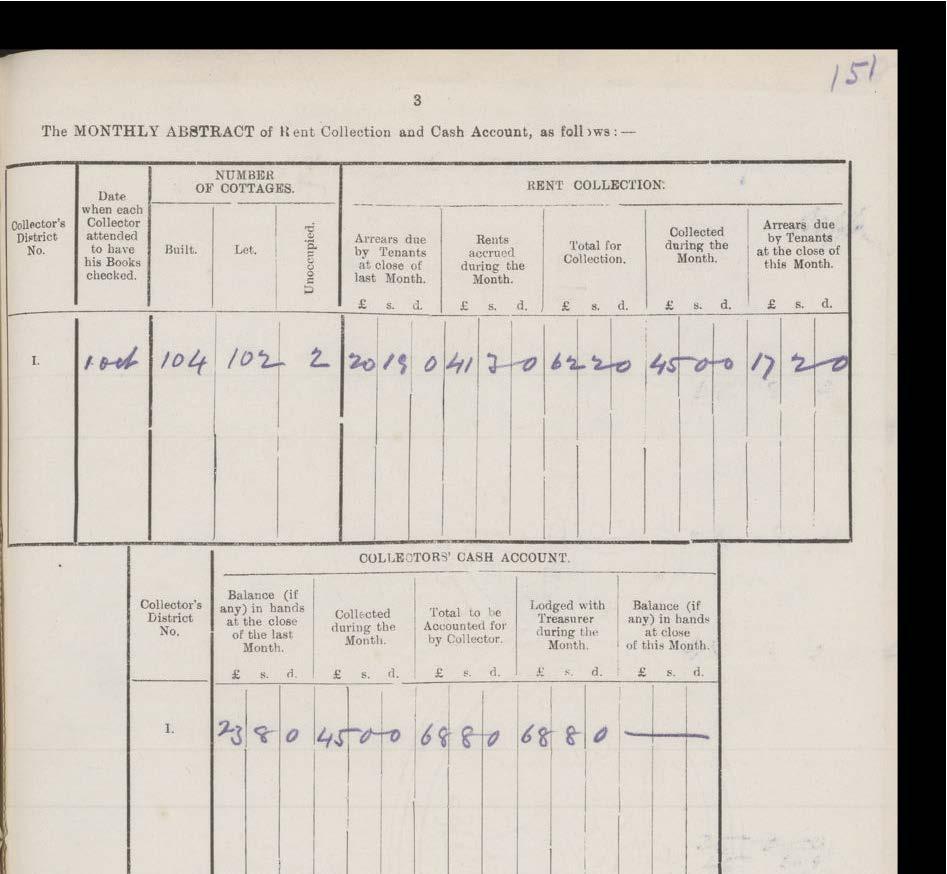 151
3
The MONTHLY ABSTRACT of Rent Collection and Cash Account, as follows:—
Collector's District No.
Date when each Collector attended to have his Books checked.
NUMBER OF COTTAGES.
Built.
Let.
Unoccupied.
RENT COLLECTION.
Arrears due by Tenants at close of last Month.
Rents accrued during the Month.
Total for Collection.
Collected during the Month.
Arrears due by Tenants at the close of this Month.
£ s. d. £ s. d. £ s. d. £ s. d. £ s. d.
I. 1 oct 104 102 2 20 19 0 41 3 0 62 2 0 45 0 0 17 2 0
COLLECTORS' CASH ACCOUNT.
Collector's District No.
Balance (if any) in hands at the close of the last Month.
Collected during the Month.
Total to be Accounted for by Collector.
Lodged with Treasurer during the Month.
Balance (if any) in hands at close of this Month.
£ s. d. £ s. d. £ s. d. £ s. d. £ s. d.
I. 23 8 0 45 0 0 68 8 0 68 8 0 —